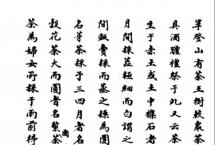 革登山有茶王樹較衆茶
具酒醴禮祭于此又云茶
生于赤土或土中雜石者
月間採蕊極細而白謂之
間販賣採而蒸之揉為團
名芽茶採于三四月者名
穀花茶大而圓者名緊團茶
茶為婦女所採于雨前得